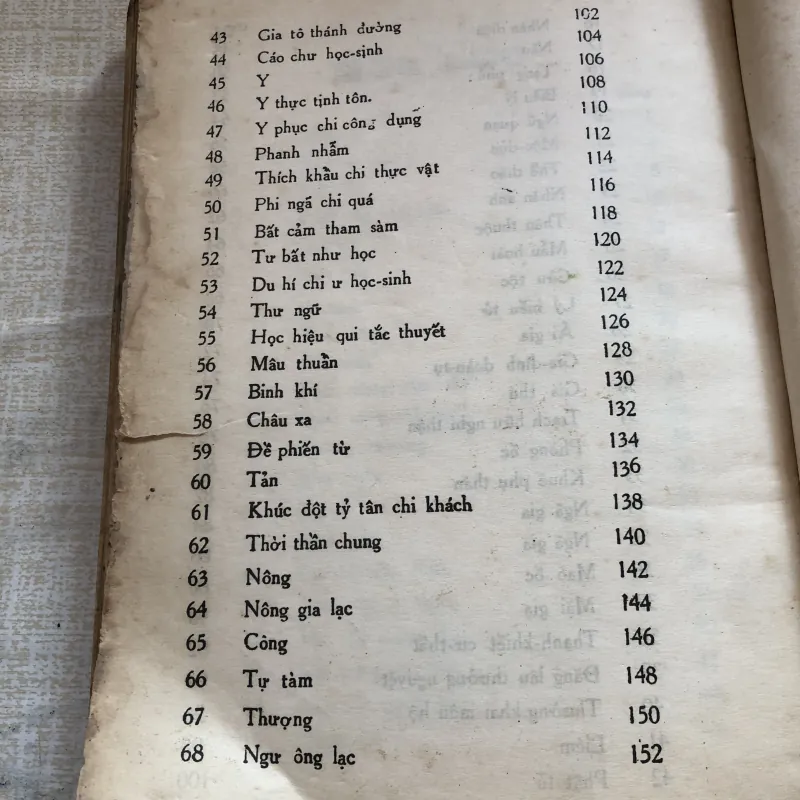 43 Gia tô thánh đường 102
44 Cáo chư học-sinh 104
45 Y 106
46 Y thực tịnh tôn. 108
47 Y phục chi công dụng 110
48 Phanh nhẫm 112
49 Thích khẩu chi thực vật 114
50 Phi ngã chi quá 116
51 Bất cảm tham sàm 118
52 Tư bất như học 120
53 Du hí chi ư học-sinh 122
54 Thư ngữ 124
55 Học hiệu qui tắc thuyết 126
56 Mâu thuẫn 128
57 Binh khí 130
58 Châu xa 132
59 Đề phiến từ 134
60 Tản 136
61 Khúc đột tỷ tân chi khách 138
62 Thời thần chung 140
63 Nông 142
64 Nông gia lạc 144
65 Công 146
66 Tự tàm 148
67 Thượng 150
68 Ngư ông lạc 152